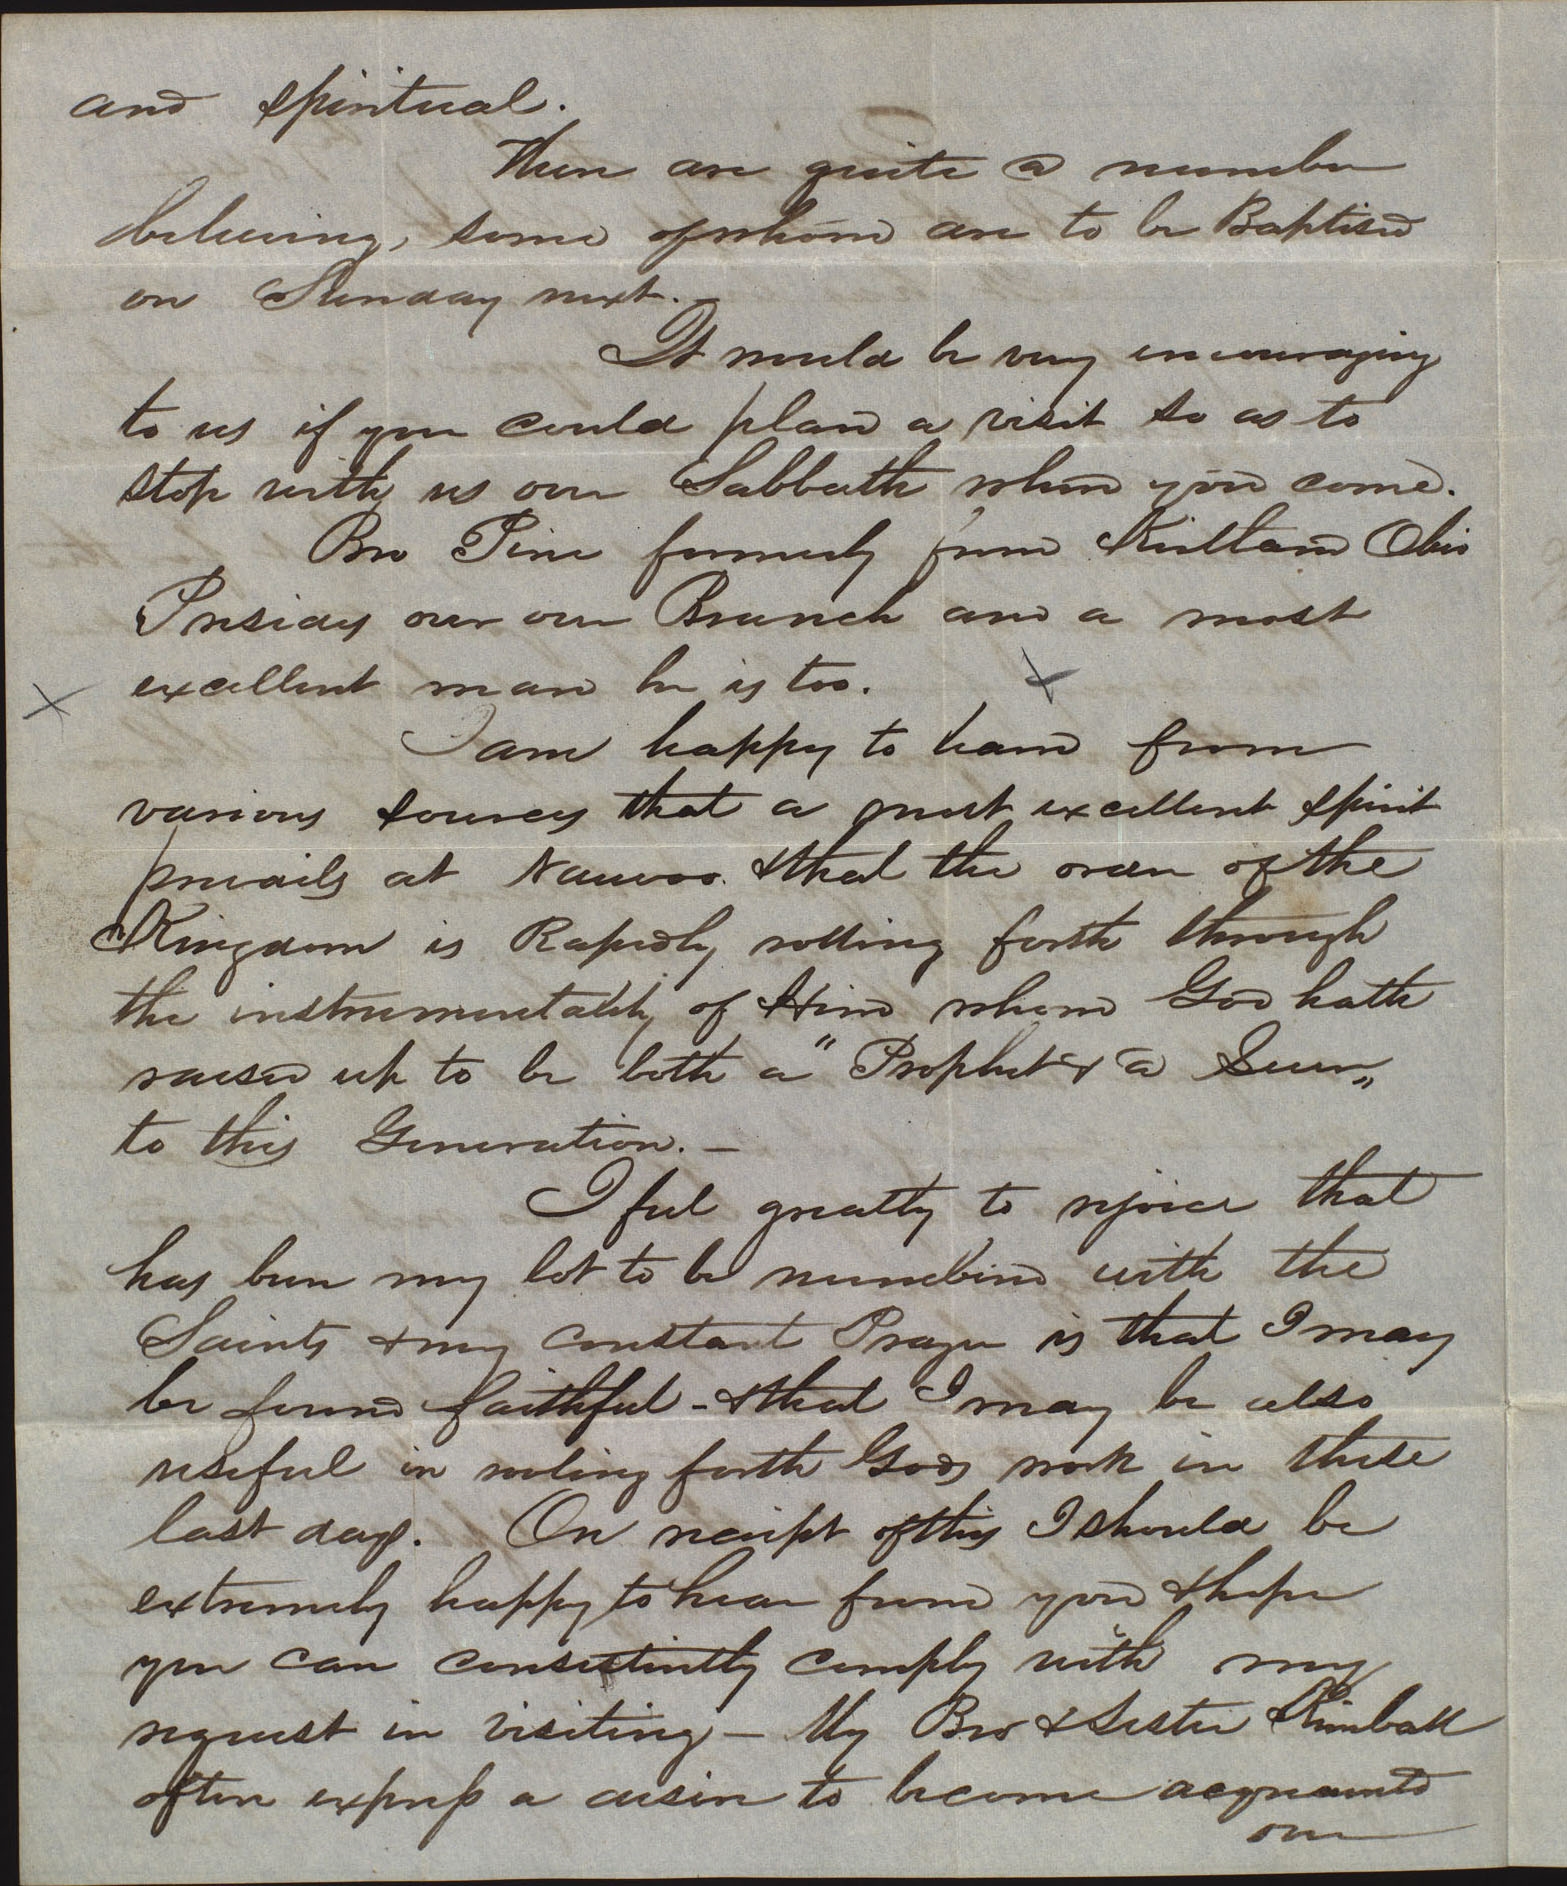 and spiritual.
There are quite a number
believing, some of whom are to be Baptised
on Sunday next.
It would be very encouraging
to us if you could plan a visit so as to
stop with us over Sabbath when you come.
Bro Pine formerly from Kirtland Ohio
Presides over our Branch and a most
excellent man he is too.
I am happy to learn from
various sources that a most excellent spirit
prevails at Nauvoo & that the order of the
Kingdom is Rapidly rolling forth through
the instrumentality of Him whom God hath
raised up to be both a "Prophet & a Seer"
to this Generation. —
I feel greatly to rejoice that
has been my lot to be numbered with the
Saints & my constant Prayer is that I may
be found faithful - & that I may be also
useful in rooling forth Gods work in these
last days. On receipt of this I should be
extremely happy to hear from you & hope
you can consistintly comply with my
request in visiting — My Bro & Sister Kimball
often express a desire to become acquainted
over